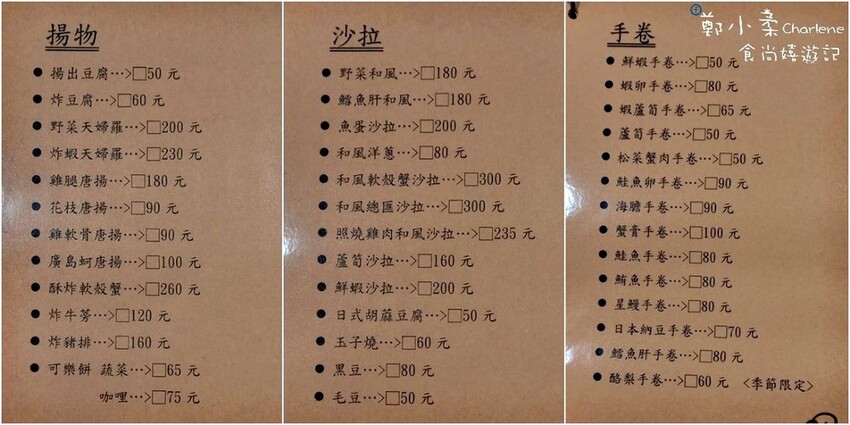 揚物
揚出豆腐…>□50 元
炸豆腐…>□60 元
野菜天婦羅…>□200 元
炸蝦天婦羅…>□230 元
雞腿唐揚…>□180 元
花枝唐揚…>□90 元
雞軟骨唐揚…>□90 元
廣島蚵唐揚…>□100 元
酥炸軟殼蟹…>□260 元
炸牛蒡…>□120 元
炸豬排…>□160 元
可樂餅 蔬菜…>□65 元
咖哩…>□75 元
沙拉
野菜和風…>□180 元
鱈魚肝和風…>□180 元
魚蛋沙拉…>□200 元
和風洋蔥…>□80 元
和風軟殼蟹沙拉…>□300 元
和風總匯沙拉…>□300 元
照燒雞肉和風沙拉…>□235 元
蘆筍沙拉…>□160 元
鮮蝦沙拉…>□200 元
日式胡蔴豆腐…>□50 元
玉子燒…>□60 元
黑豆…>□80 元
毛豆…>□50 元
手卷
鮮蝦手卷…>□50 元
蝦卵手卷…>□80 元
蝦蘆筍手卷…>□65 元
蘆筍手卷…>□50 元
松葉蟹肉手卷…>□50 元
鮭魚卵手卷…>□90 元
海膽手卷…>□90 元
蟹膏手卷…>□100 元
鮭魚手卷…>□80 元
鮪魚手卷…>□80 元
星鰻手卷…>□80 元
日本納豆手卷…>□70 元
鱈魚肝手卷…>□80 元
酪梨手卷…>□60 元 <季節限定>
鄭小柔Charlene
食尚嬉遊記